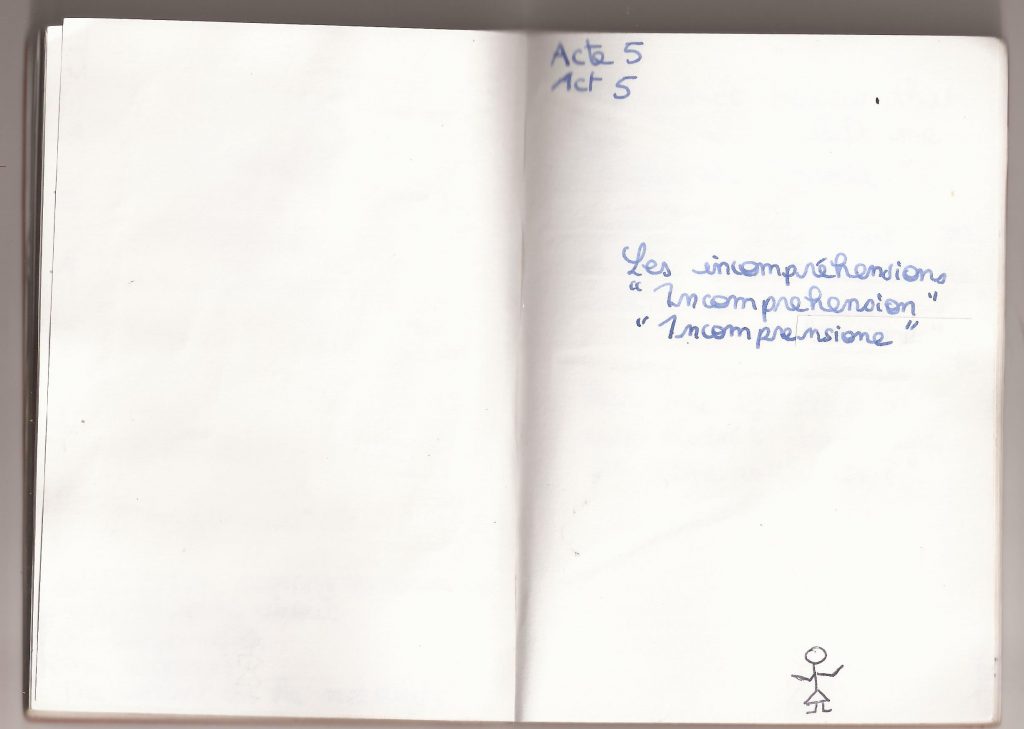 Acte 5
Act 5
Les incompréhensions
“ Incomprehension ”
“ Incomprensione ”